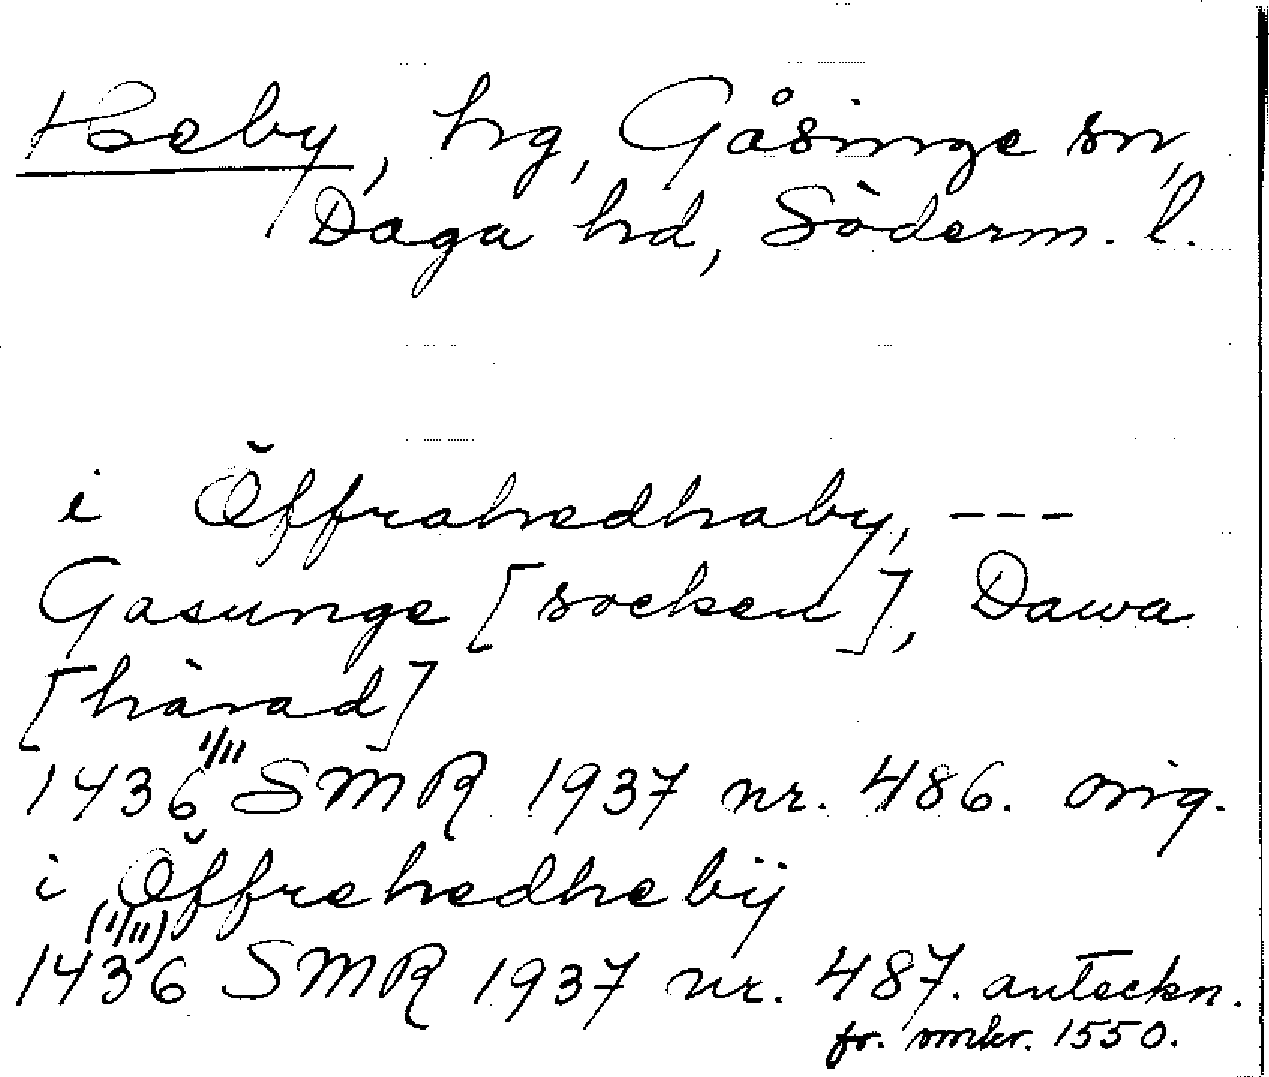 Heby, hg, Gåsinge sn,
Daga hd, Söderm. l.
i Öffrahedhaby, ---
Gasunge [socken], Dawa
[härad]
1436 1/11 SMR 1937 nr. 486. orig.
i Öffrehedhebÿ
1436 (1/11) SMR 1937 nr. 487. anteckn.
fr. omkr. 1550.